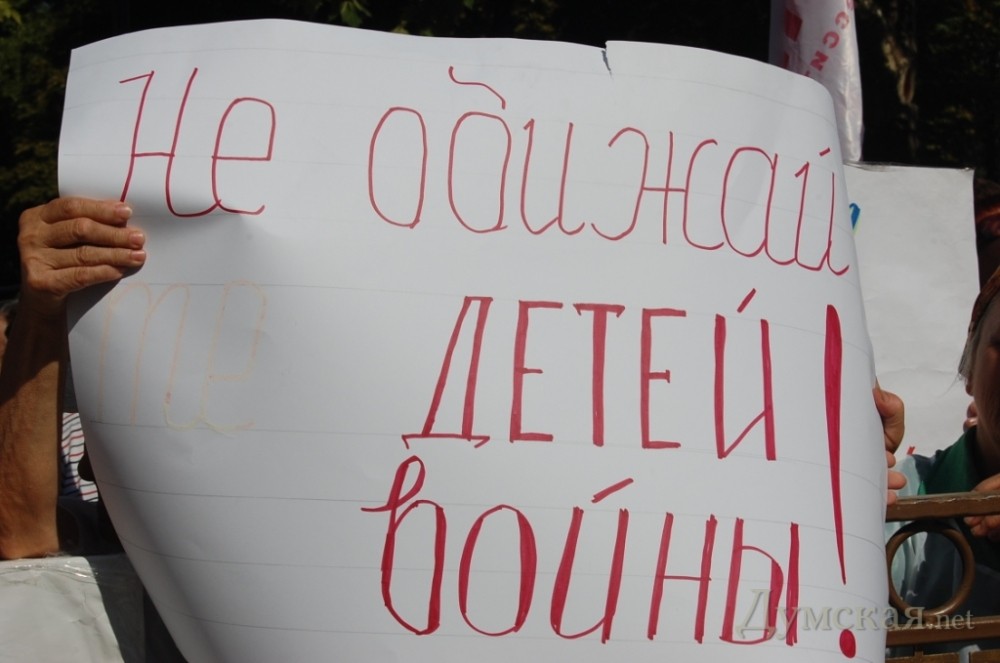 Не обижай
те ДЕТЕЙ
войны!
Думская.net